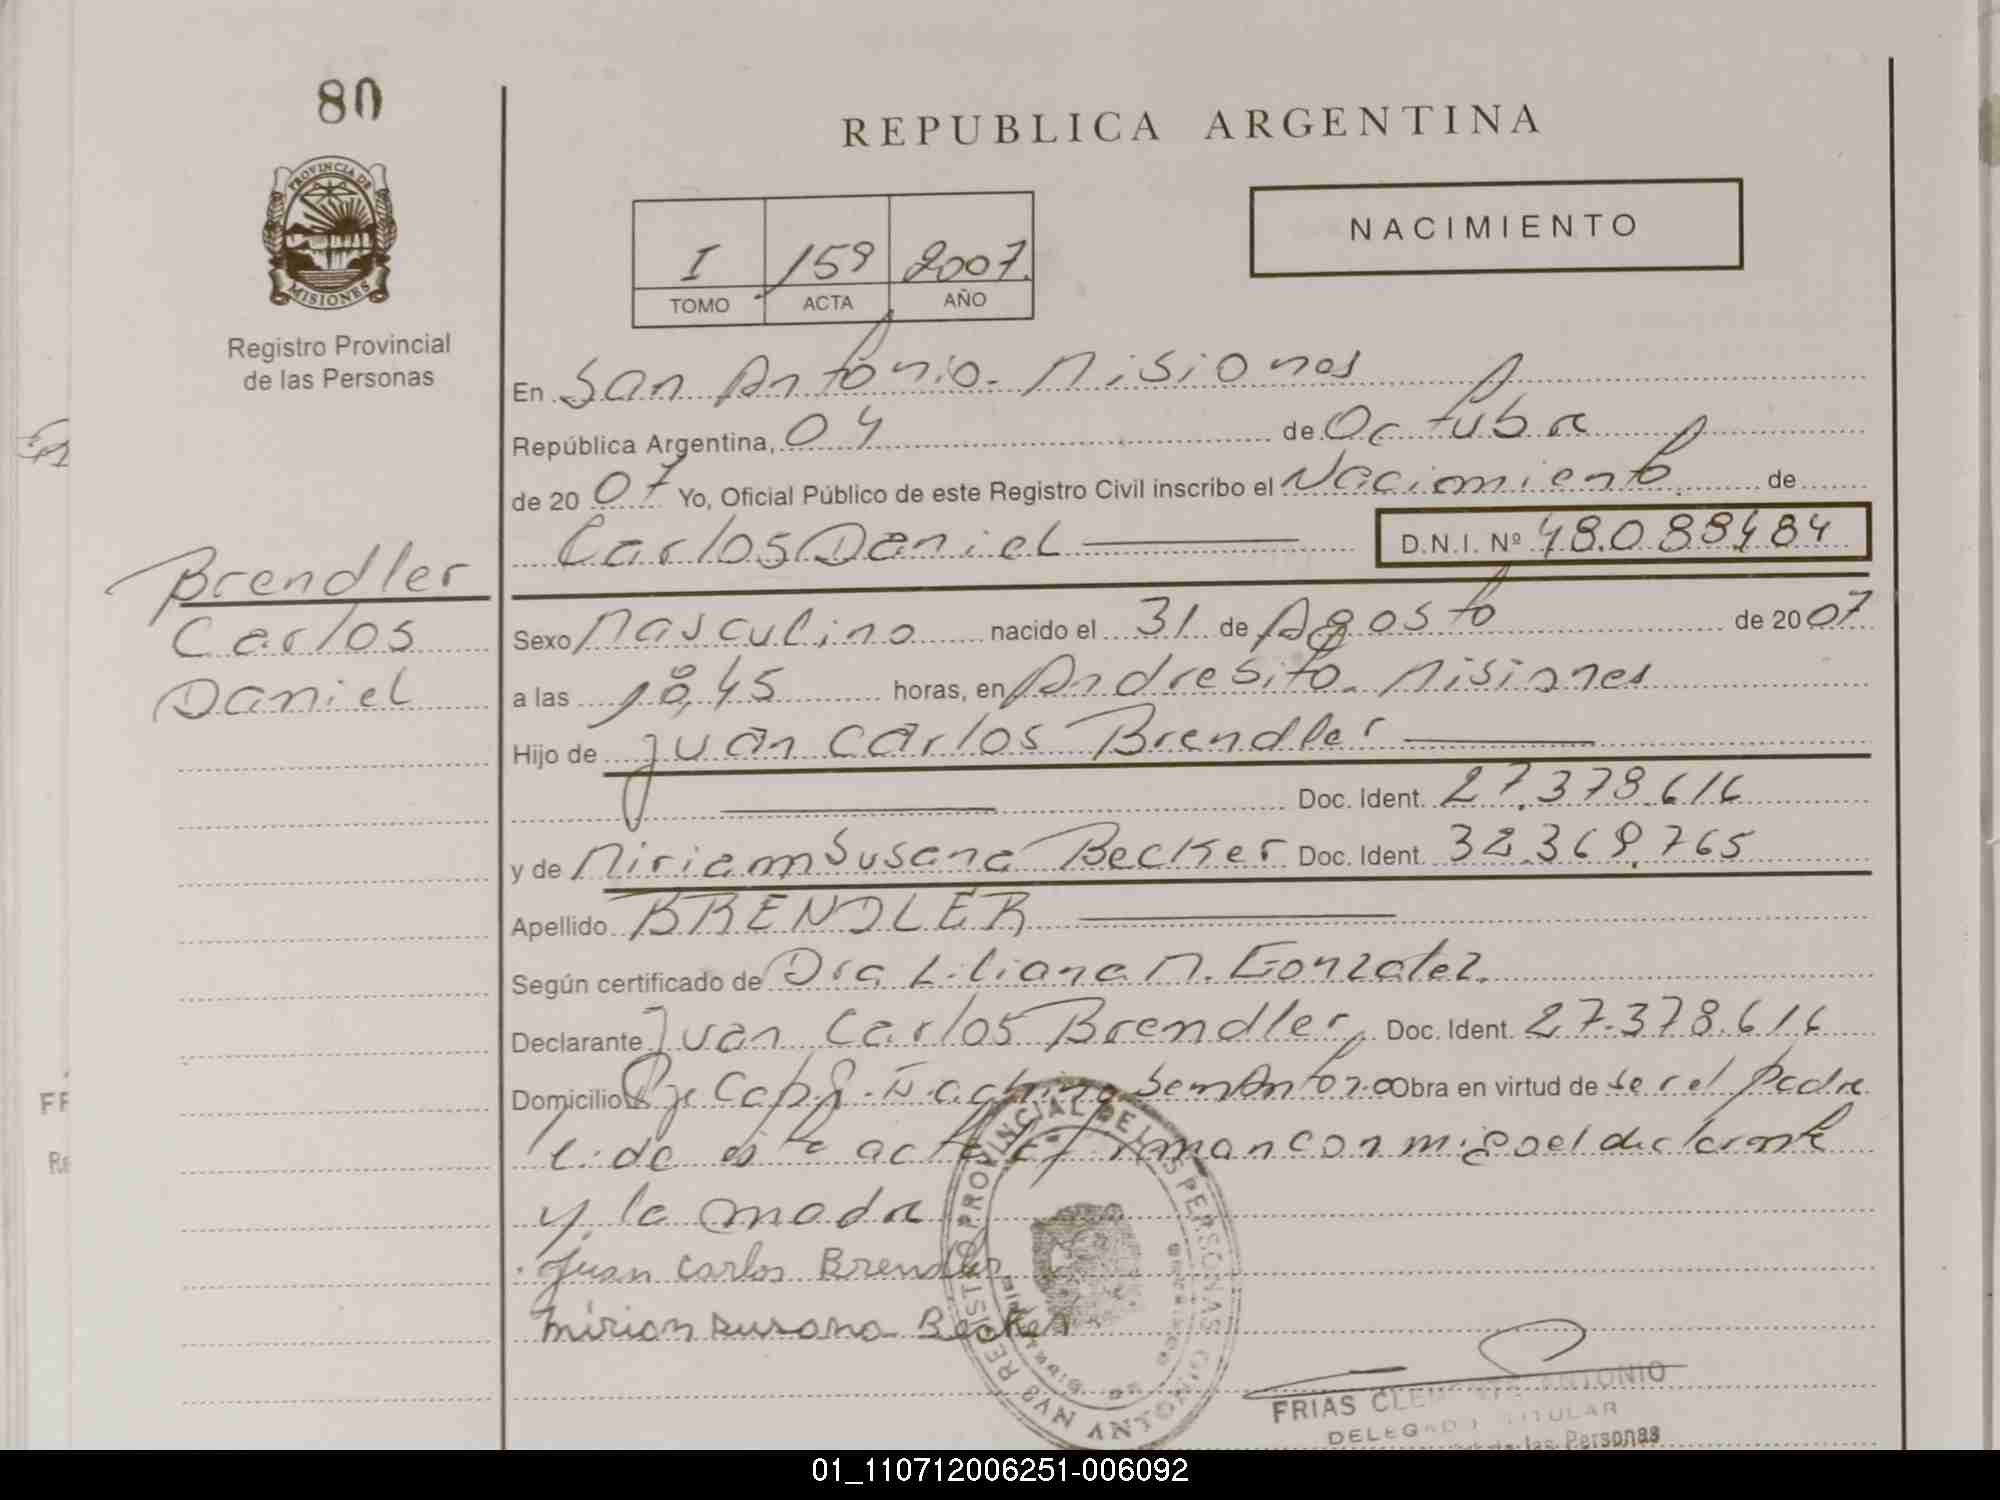 80
REPUBLICA ARGENTINA
PROVINCIA DE
MISIONES
NACIMIENTO
I 159 2007.
TOMO ACTA AÑO
Registro Provincial
de las Personas
En San Antonio. Misiones
República Argentina, 04 de Octubre
de 2007 Yo, Oficial Público de este Registro Civil inscribo el Nacimiento de
Carlos Daniel D.N.I. Nº 48.088484
Brendler
Carlos
Daniel
Sexo Masculino nacido el 31 de Agosto de 2007
a las 18,45 horas, en Andresito. Misiones
Hijo de Juan Carlos Brendler
Doc. Ident. 27.378.616
y de Miriam Susana Becker Doc. Ident. 32.369.765
Apellido BRENDLER
Según certificado de Dra Liliana M. Gonzalez.
Declarante Juan Carlos Brendler Doc. Ident. 27.378.616
Domicilio San Antonio Obra en virtud de ser el padre
leida este acta la firman conmigo el declarante
y la madre
Juan Carlos Brendler
Mirian Susana Becker
REGISTRO PROVINCIAL DE LAS PERSONAS
FRIAS CLEMENTE ANTONIO
DELEGADO TITULAR
de las Personas
01_110712006251-006092